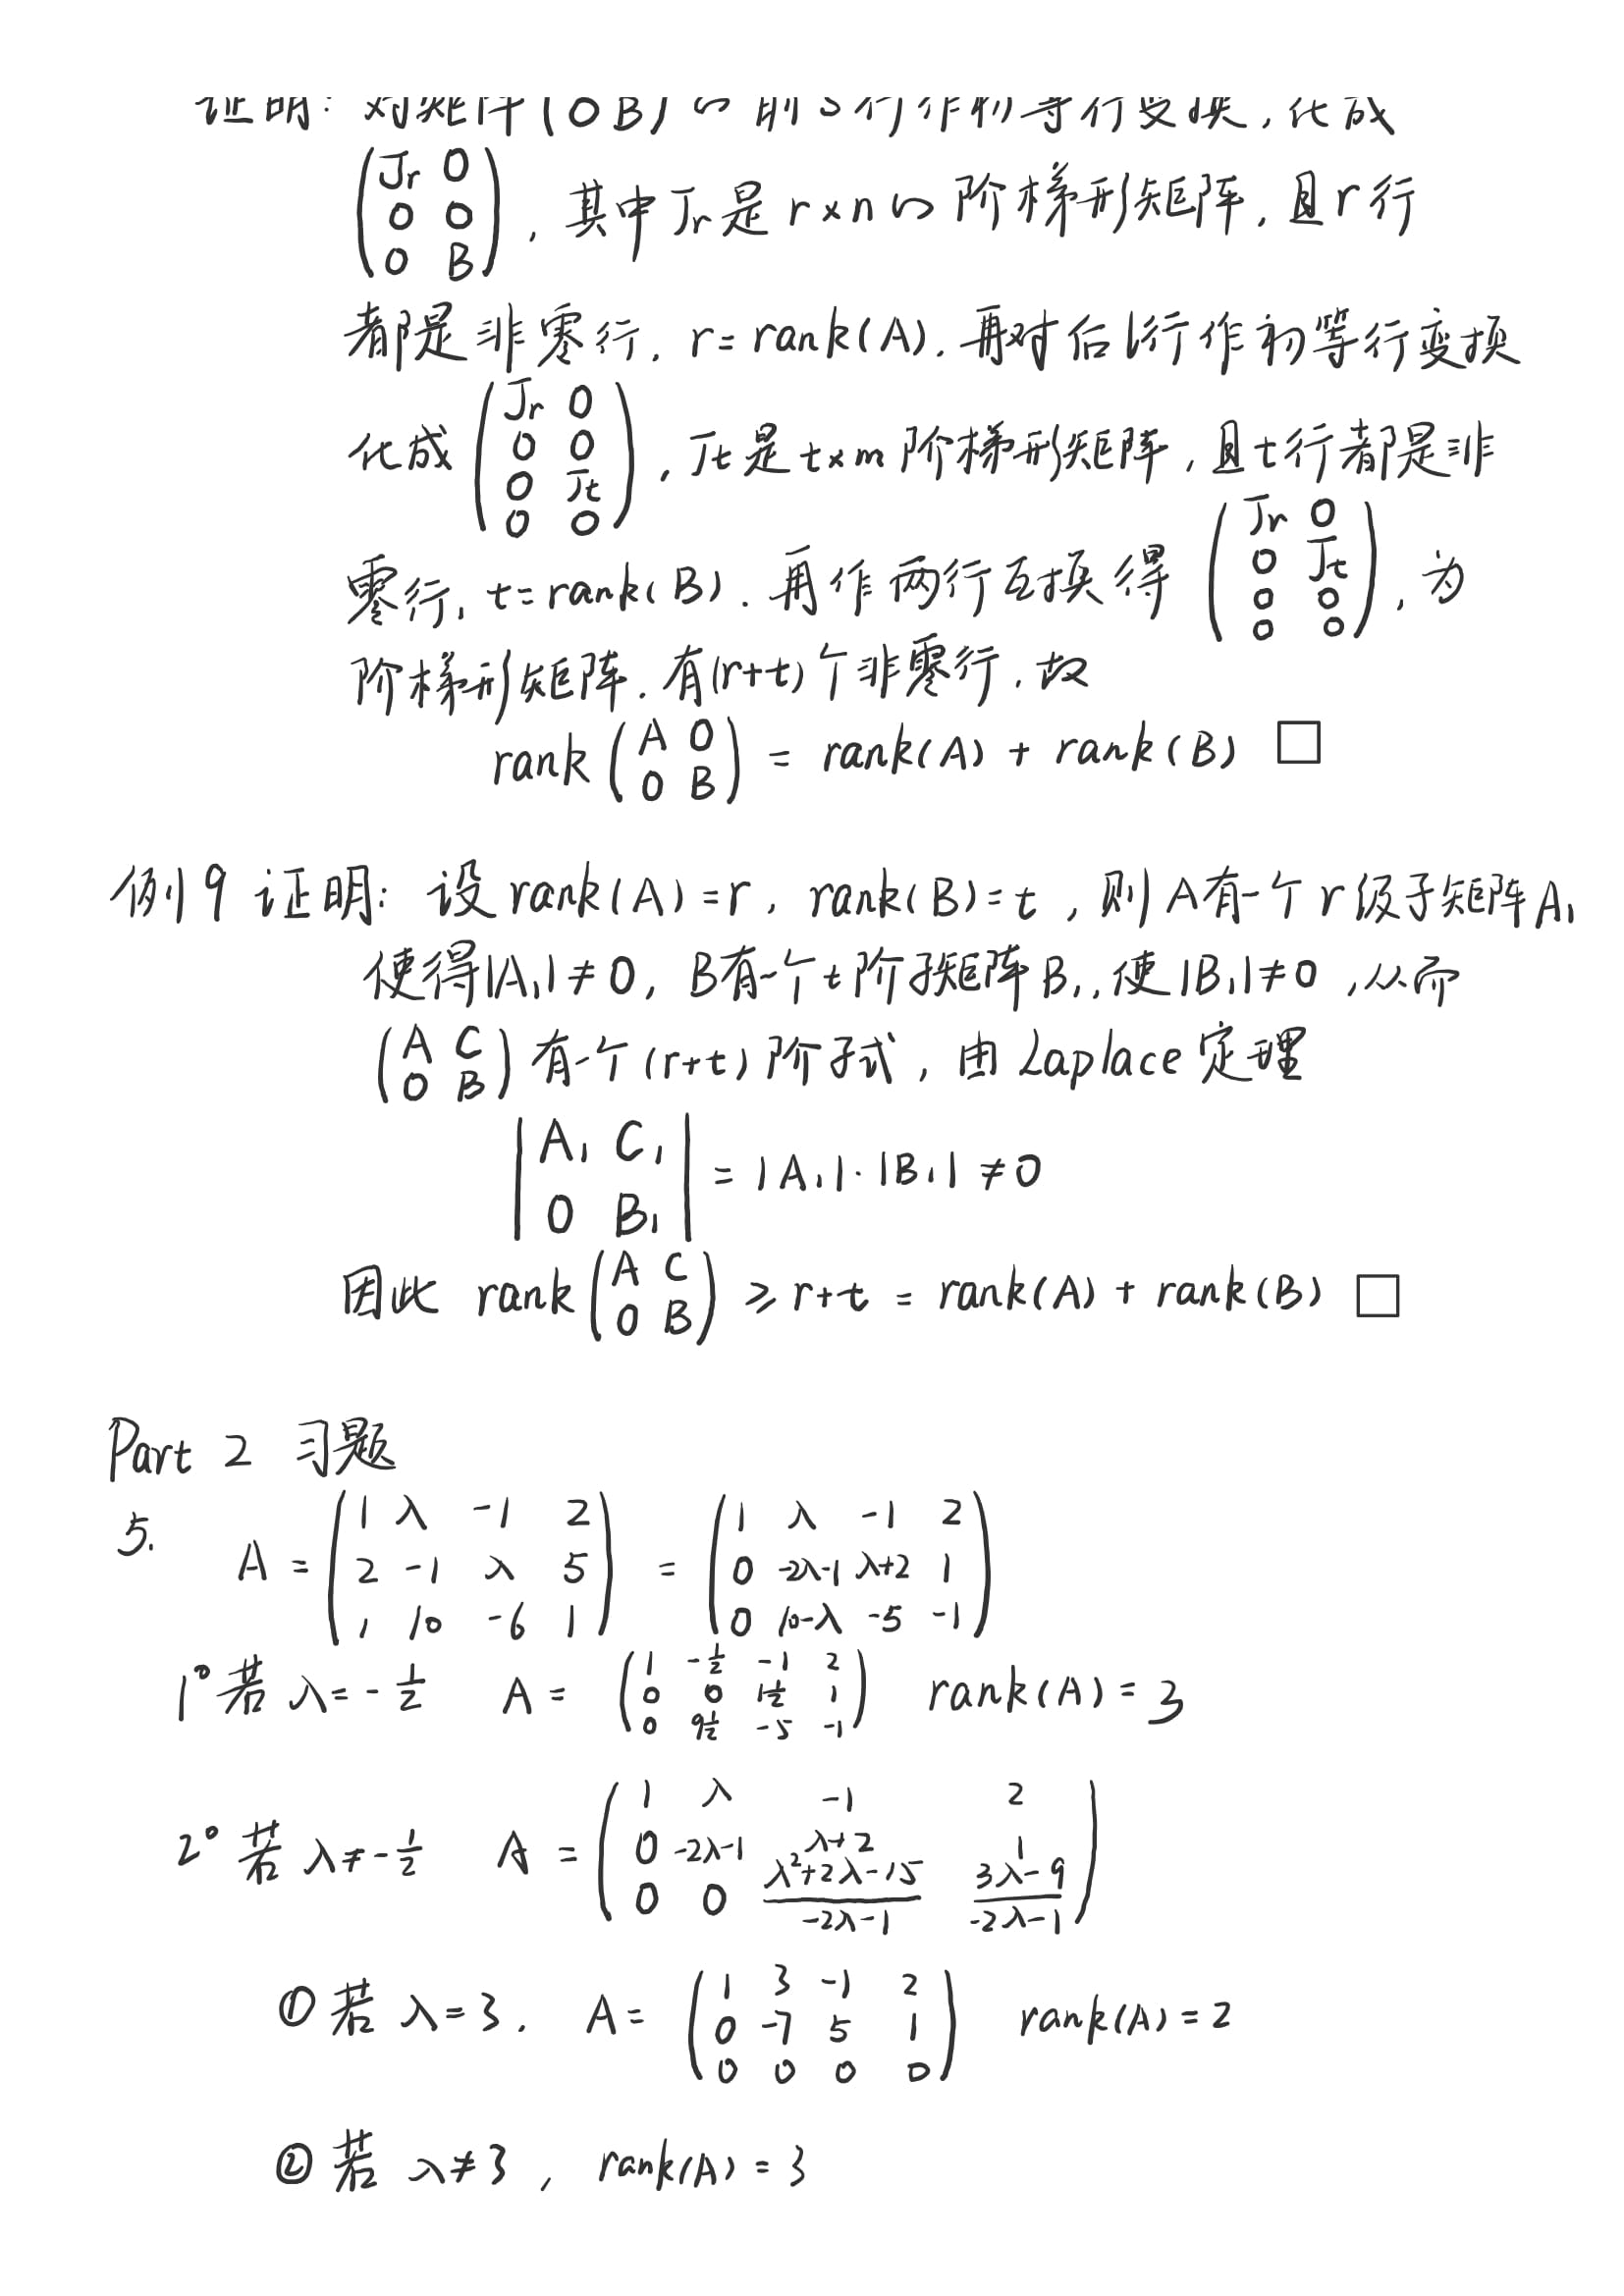 证明: 对矩阵(0 B)的前s行作初等行变换,化成
(Jr 0
0 0
0 B), 其中Jr是r×n的阶梯形矩阵,且r行
都是非零行, r=rank(A). 再对后l行作初等行变换
化成(Jr 0
0 0
0 Jt
0 0), Jt是t×m阶梯形矩阵,且t行都是非
零行, t=rank(B). 再作两行互换得(Jr 0
0 Jt
0 0
0 0), 为
阶梯形矩阵. 有(r+t)个非零行,故
rank(A 0
0 B) = rank(A) + rank(B) □
例9 证明: 设rank(A)=r, rank(B)=t, 则A有一个r级子矩阵A₁
使得|A₁|≠0, B有一个t阶子矩阵B₁,使|B₁|≠0,从而
(A C
0 B)有一个(r+t)阶子式, 由Laplace定理
|A₁ C₁
0 B₁| = |A₁|·|B₁| ≠0
因此 rank(A C
0 B) ⩾ r+t = rank(A) + rank(B) □
Part 2 习题
5.
A = (1 λ -1 2
2 -1 λ 5
1 10 -6 1) = (1 λ -1 2
0 -2λ-1 λ+2 1
0 10-λ -5 -1)
1° 若 λ=-1/2 A = (1 -1/2 -1 2
0 0 1 1/2 1
0 9 1/2 -5 -1) rank(A)=3
2° 若 λ≠-1/2 A = (1 λ -1 2
0 -2λ-1 λ+2 1
0 0 (λ²+2λ-15)/(-2λ-1) (3λ-9)/(-2λ-1))
① 若 λ=3. A = (1 3 -1 2
0 -7 5 1
0 0 0 0) rank(A)=2
② 若 λ≠3, rank(A)=3